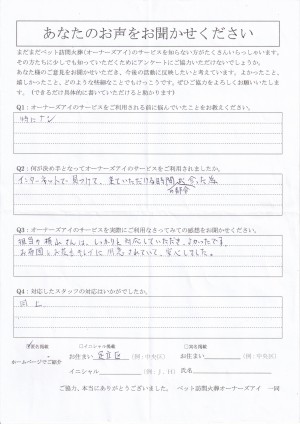 あなたのお声をお聞かせください
まだまだペット訪問火葬(オーナーズアイ)のサービスを知らない方がたくさんいらっしゃいます。
その方たちに少しでも知っていただくためにアンケートにご協力いただけないでしょうか。
あなた様のご意見をお聞かせいただき、今後の活動に反映したいと考えています。よかったこと、
嬉しかったこと、どのような些細なことでもけっこうです。ぜひご協力をよろしくお願いいたします。
(できるだけ具体的に書いていただけると助かります)
Q1:オーナーズアイのサービスをご利用される前に悩んでいたことをお教えください。
特にナシ
Q2:何が決め手となってオーナーズアイのサービスをご利用されましたか。
インターネットで見つけて、来ていただける時間
Q3:オーナーズアイのサービスを実際にご利用になさってみての感想をお聞かせください。
担当の横山さんは、しっかりと対応していただき、よかったです。
お骨図とお花もキレイに用意されていて、安心しました。
Q4:対応したスタッフの対応はいかがでしたか。
同上
匿名掲載
□イニシャル掲載
□実名掲載
ホームページでご紹介
お住まい 足立区 (例:中央区)
お住まい (例:中央区)
イニシャル (例:J.H)
氏名
ご協力、本当にありがとうございました。 ペット訪問火葬オーナーズアイ 一同